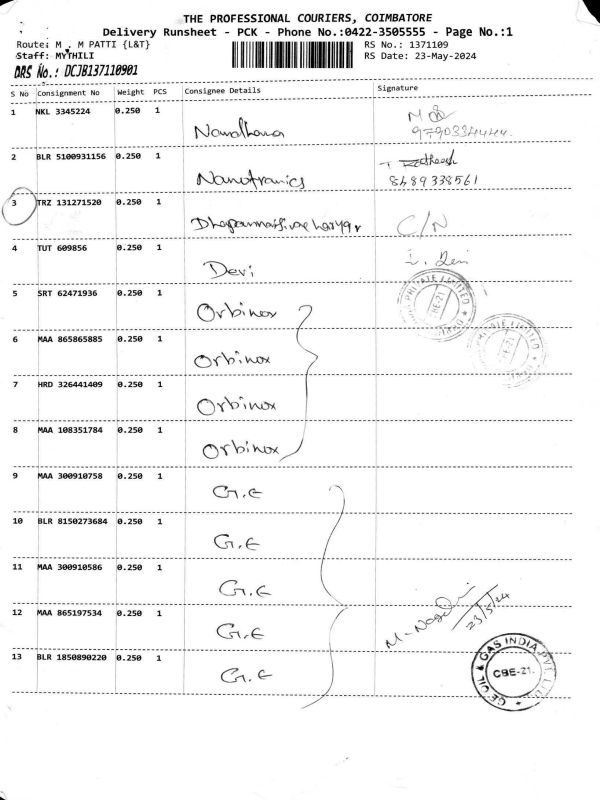 THE PROFESSIONAL COURIERS, COIMBATORE
Delivery Runsheet - PCK - Phone No.:0422-3505555 - Page No.:1
Route: M . M PATTI {L&T} RS No.: 1371109
Staff: MYTHILI RS Date: 23-May-2024
DRS No.: DCJB137110901
S No Consignment No Weight PCS Consignee Details Signature
1 NKL 3345224 0.250 1 Nandhana
9790334444.
2 BLR 5100931156 0.250 1 Nanotronics
8489338561
3 TRZ 131271520 0.250 1 C/N
4 TUT 609856 0.250 1 Devi
5 SRT 62471936 0.250 1 Orbinox
PRIVATE LIMITED
6 MAA 865865885 0.250 1 Orbinox
PRIVATE LIMITED
7 HRD 326441409 0.250 1 Orbinox
8 MAA 108351784 0.250 1 Orbinox
9 MAA 300910758 0.250 1 G.E
10 BLR 8150273684 0.250 1 G.E
11 MAA 300910586 0.250 1 G.E
12 MAA 865197534 0.250 1 G.E
23/5/24
13 BLR 1850890220 0.250 1 G.E
GE OIL & GAS INDIA PVT LTD
CBE-21.